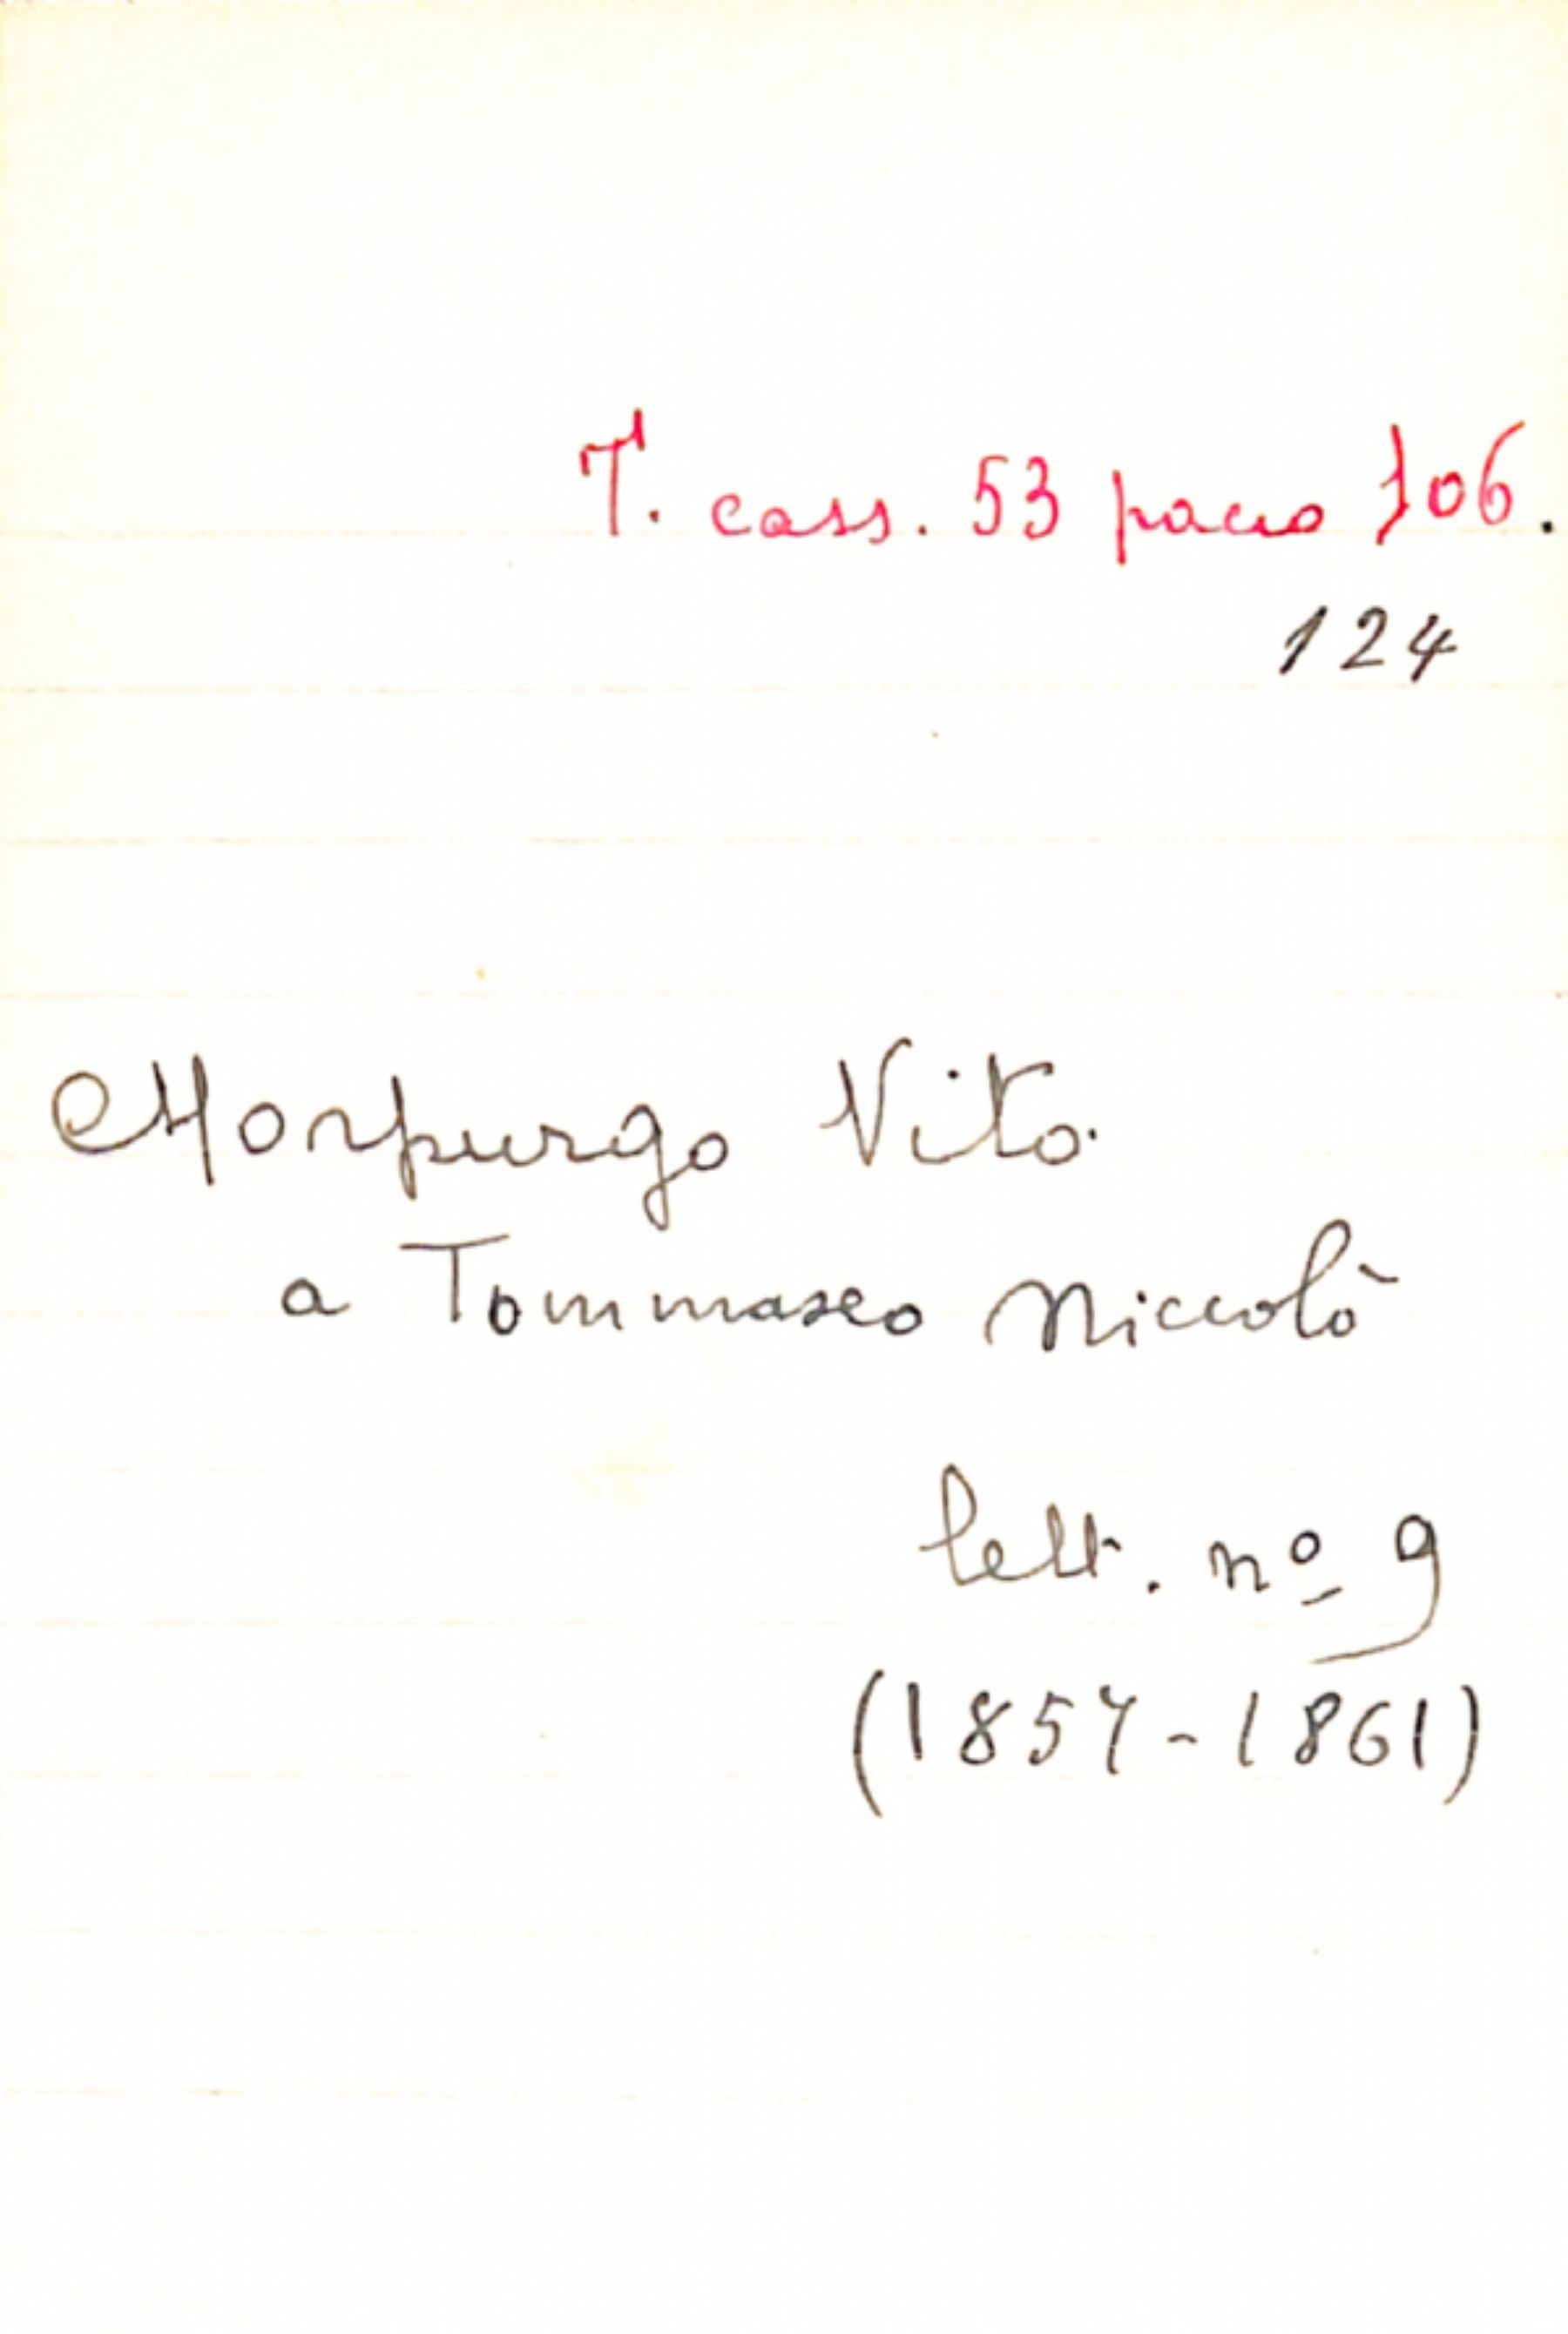 T. cass. 53 pacco 106.
124
Morpurgo Vito.
a Tommaseo Niccolò
lett. nº 9
(1857-1861)